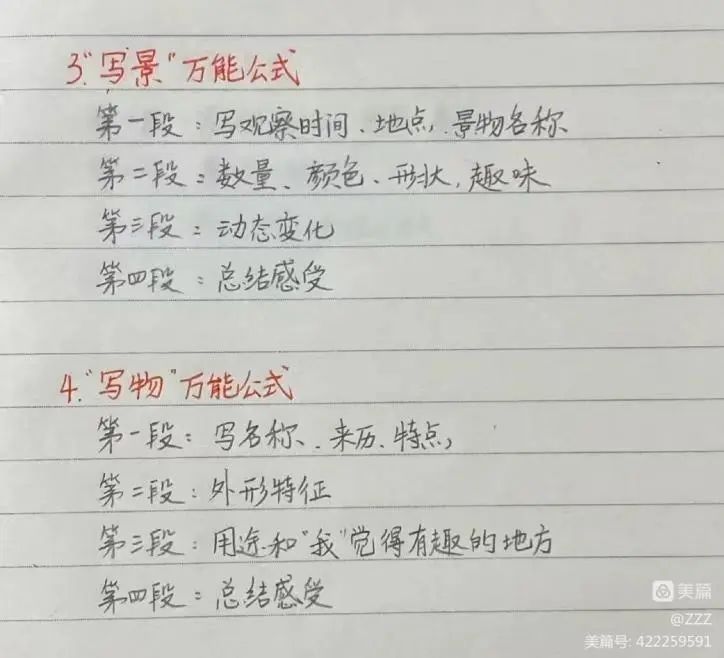 3."写景"万能公式
第一段：写观察时间、地点，景物名称
第二段：数量、颜色、形状，趣味
第三段：动态变化
第四段：总结感受
4."写物"万能公式
第一段：写名称、来历、特点，
第二段：外形特征
第三段：用途和"我"觉得有趣的地方
第四段：总结感受
美篇
@ZZZ
美篇号: 422259591